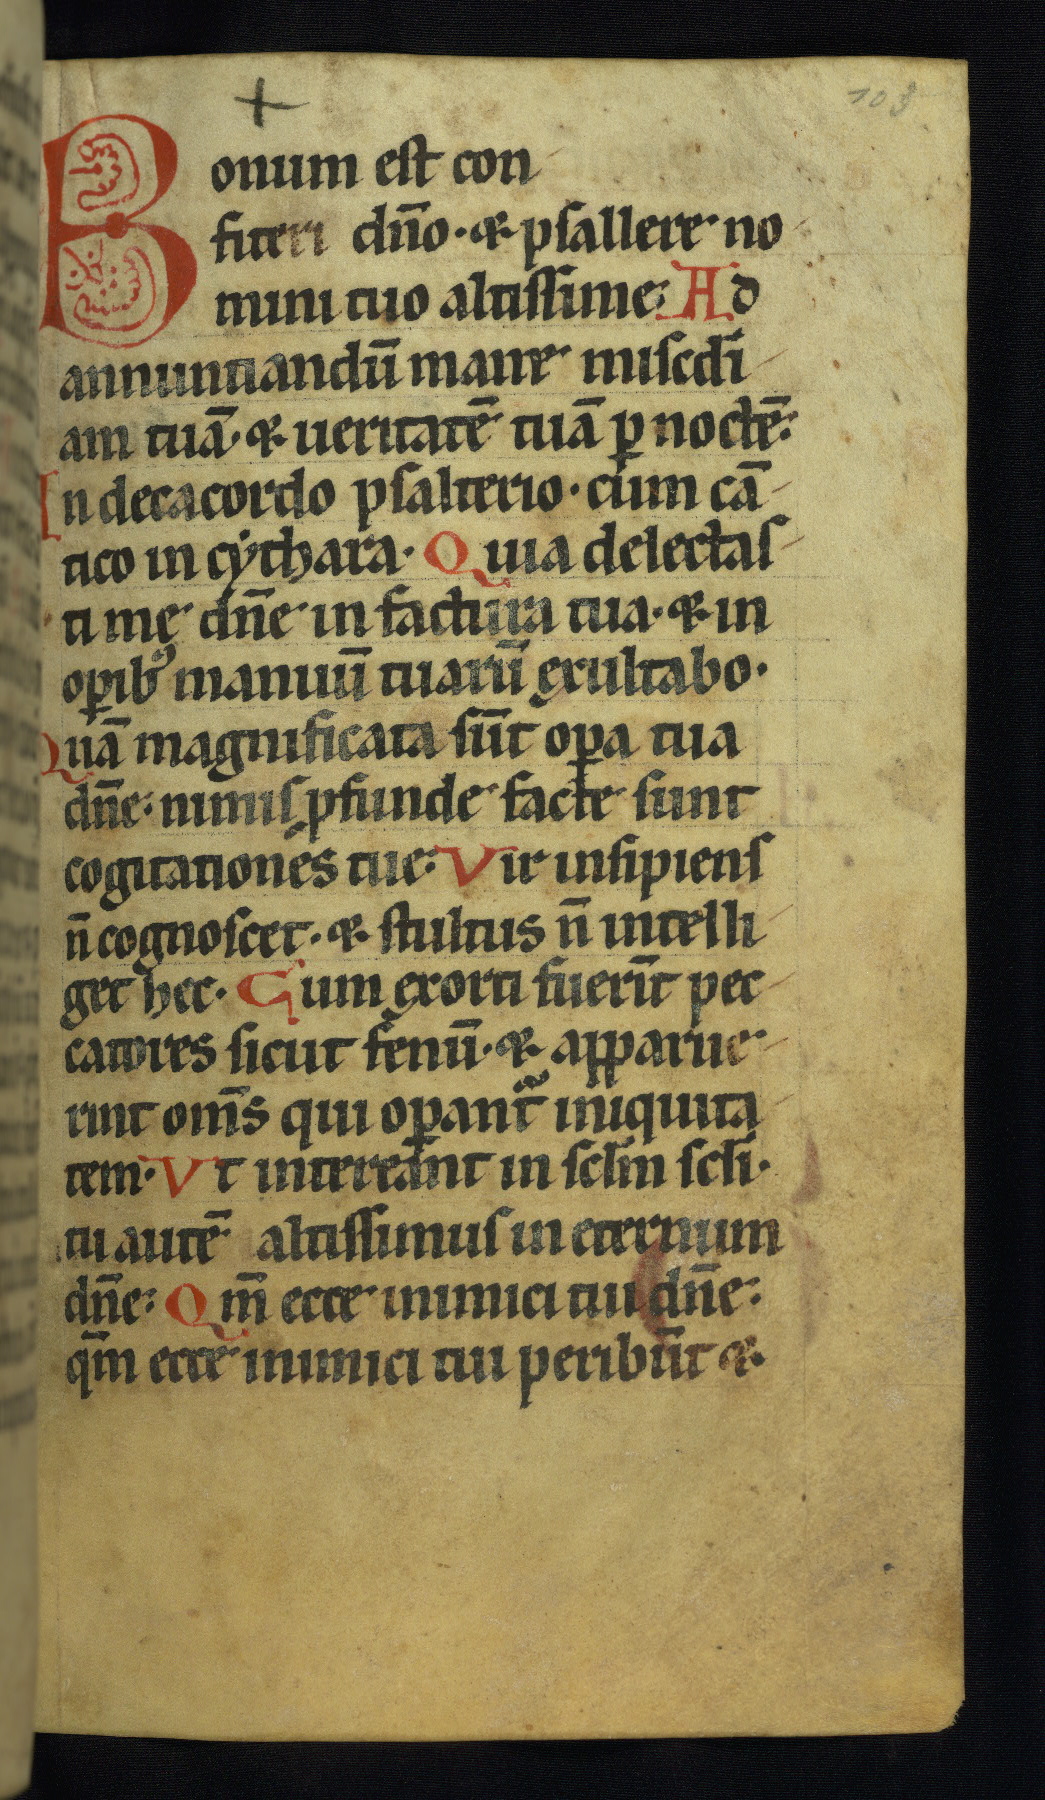 103
Bonum est con
fiteri dn̄o· & psallere no
mini tuo altissime: Ad
annuntiandū mane misc̄di
am tuā· & ueritatē tuā ꝑ noctē:
In decacordo psalterio· cum cā
tico in cythara· Quia delectas
ti mę dn̄e in factura tua· & in
oꝑibꝰ manuū tuarū exultabo·
Quā magnificata sūt oꝑa tua
dn̄e: nimis ꝓfunde facte sunt
cogitationes tue: Vir insipiens
n̄ cognoscet· & stultus n̄ intelli
get hec· Cum exorti fuerīt pec
catores sicut fenū· & apparue
rint om̄s qui oꝑant᷑ iniquita
tem· Vt intereant in sc̄lm sc̄li·
tu autē altissimus in eternum
dn̄e: Qm̄ ecce inimici tui dn̄e:
qm̄ ecce inimici tui peribūt &·